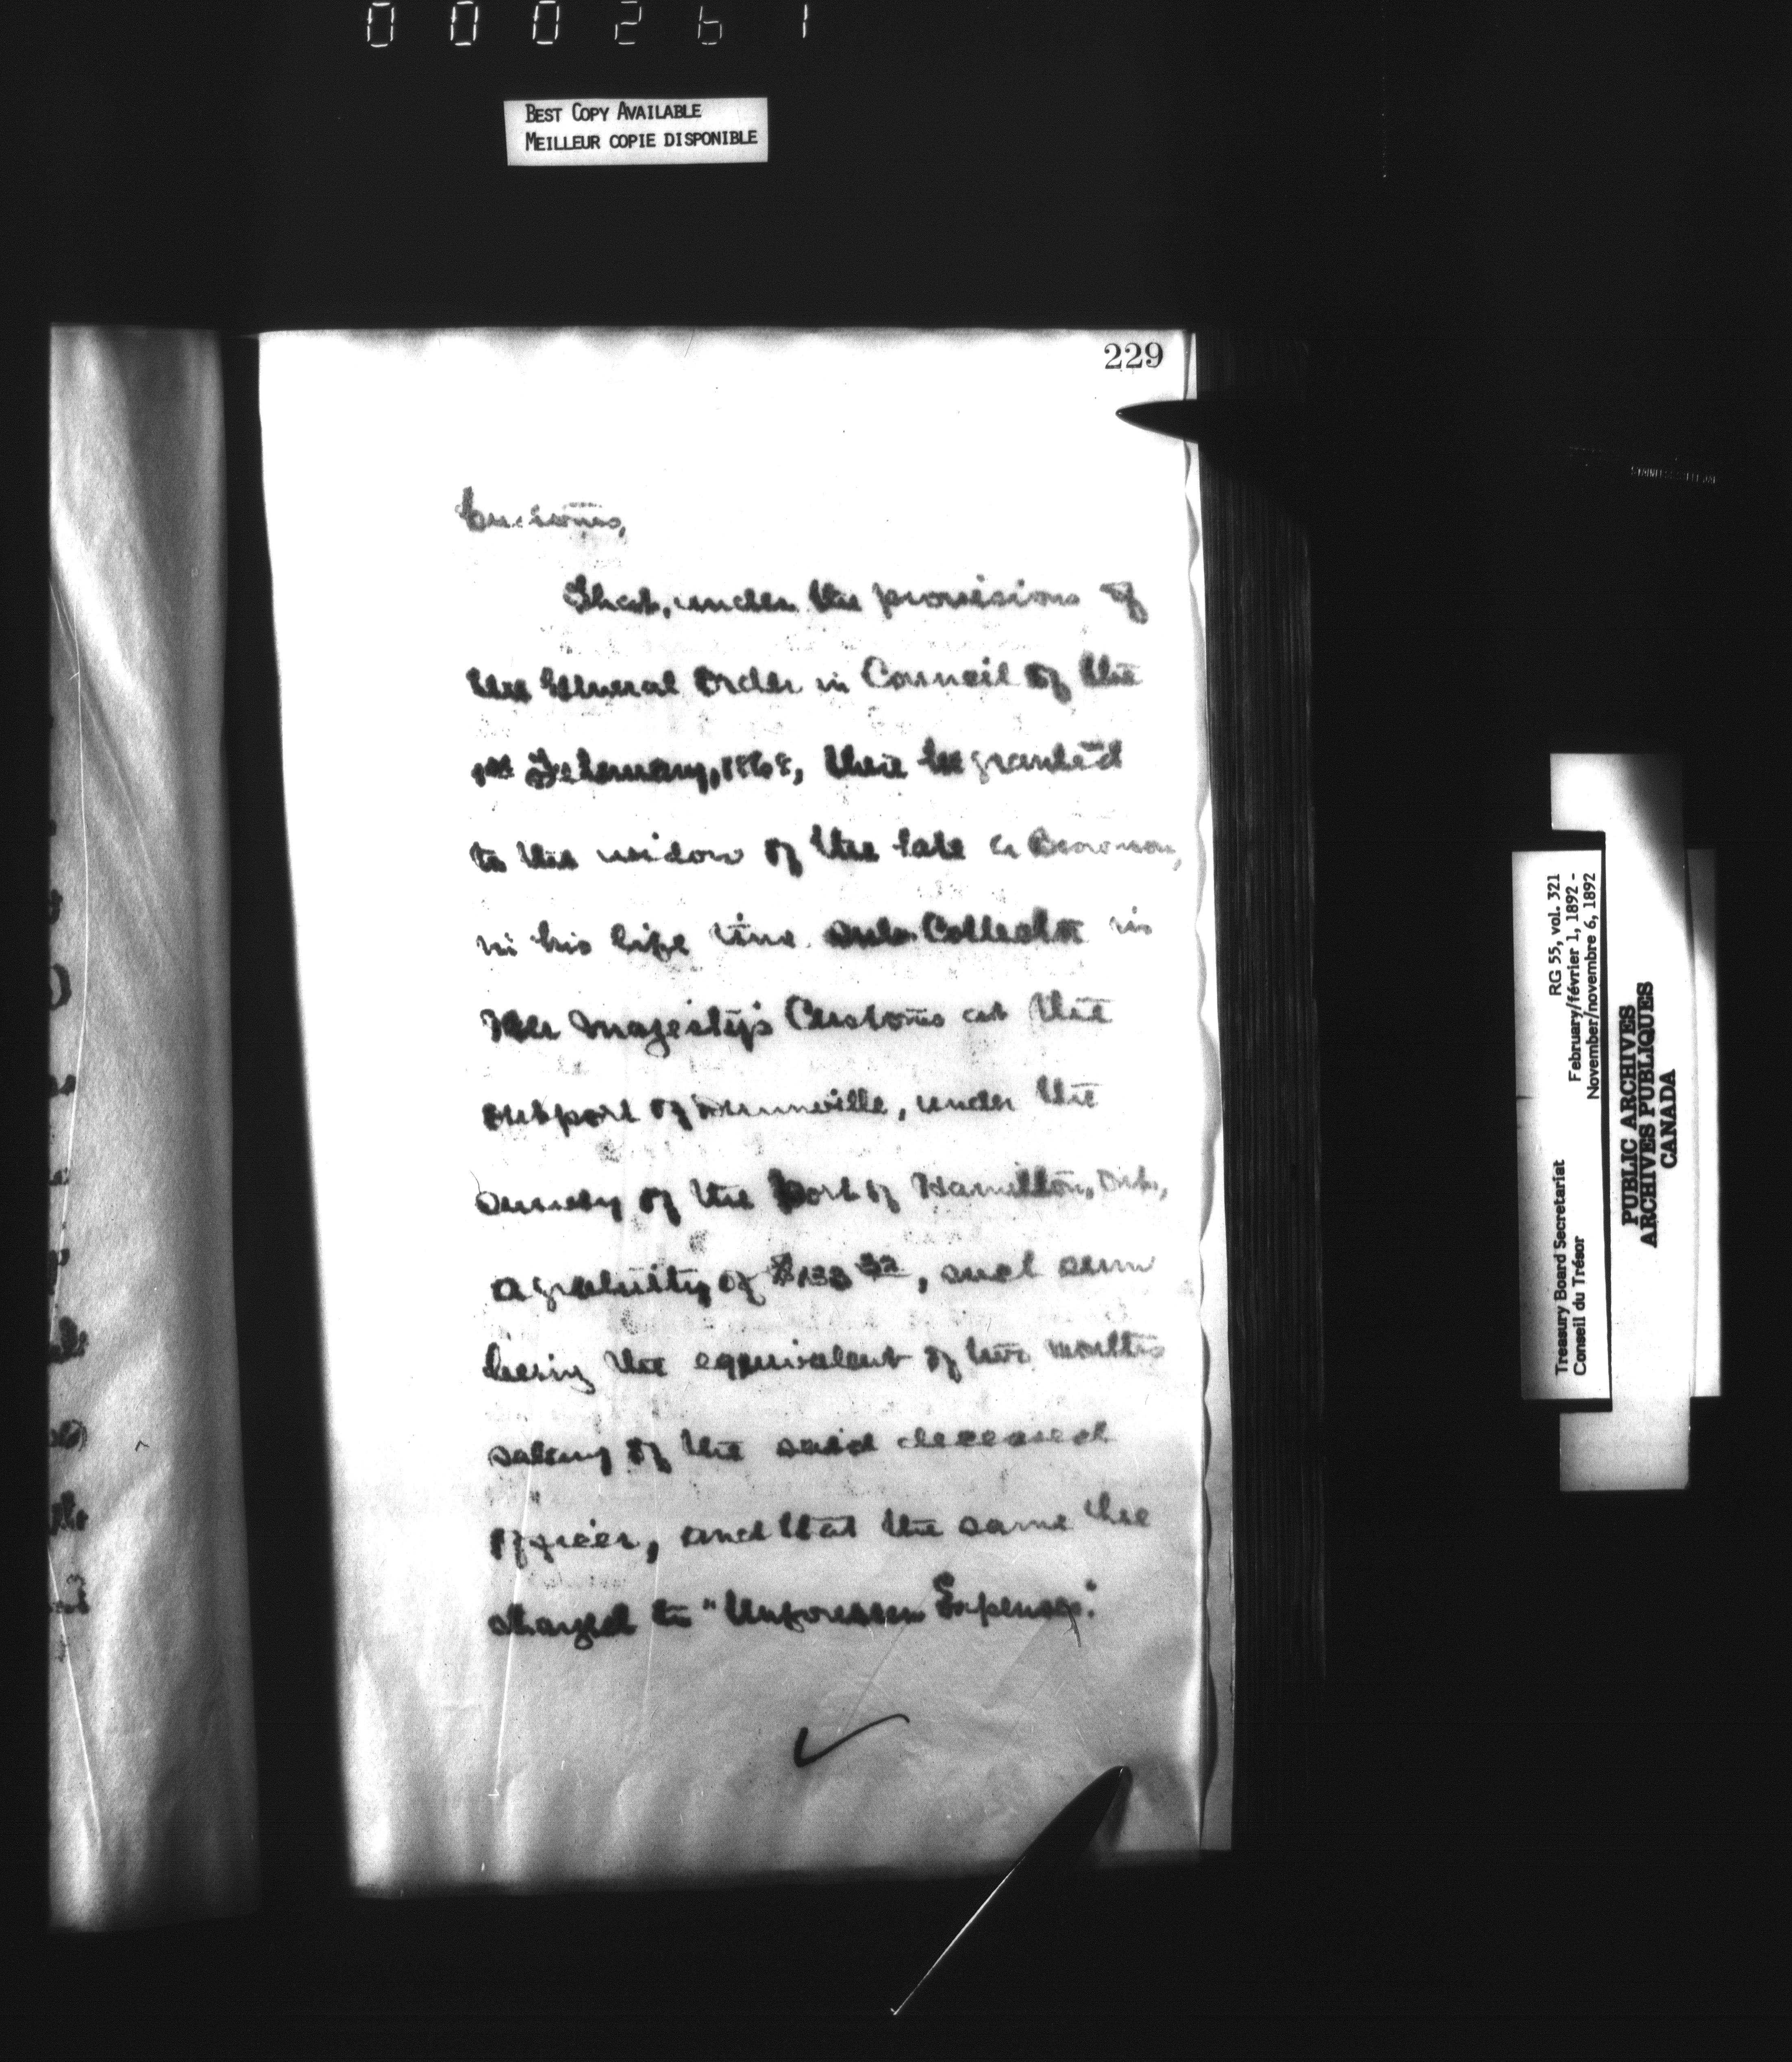 000261
BEST COPY AVAILABLE
MEILLEUR COPIE DISPONIBLE
229
Customs,
That, under the provisions of
the General Order in Council of the
1st February, 1868, there be granted
to the widow of the late
in his life time Sub-Collector in
Her Majesty's Customs at the
outport of Dunnville, under the
survey of the Port of Hamilton, Ont.,
a gratuity of $133 32, such sum
being the equivalent of two months
salary of the said deceased
officer, and that the same be
charged to "Unforeseen Expenses."
Treasury Board Secretariat RG 55, vol. 321
Conseil du Trésor February/février 1, 1892 -
November/novembre 6, 1892
PUBLIC ARCHIVES
ARCHIVES PUBLIQUES
CANADA